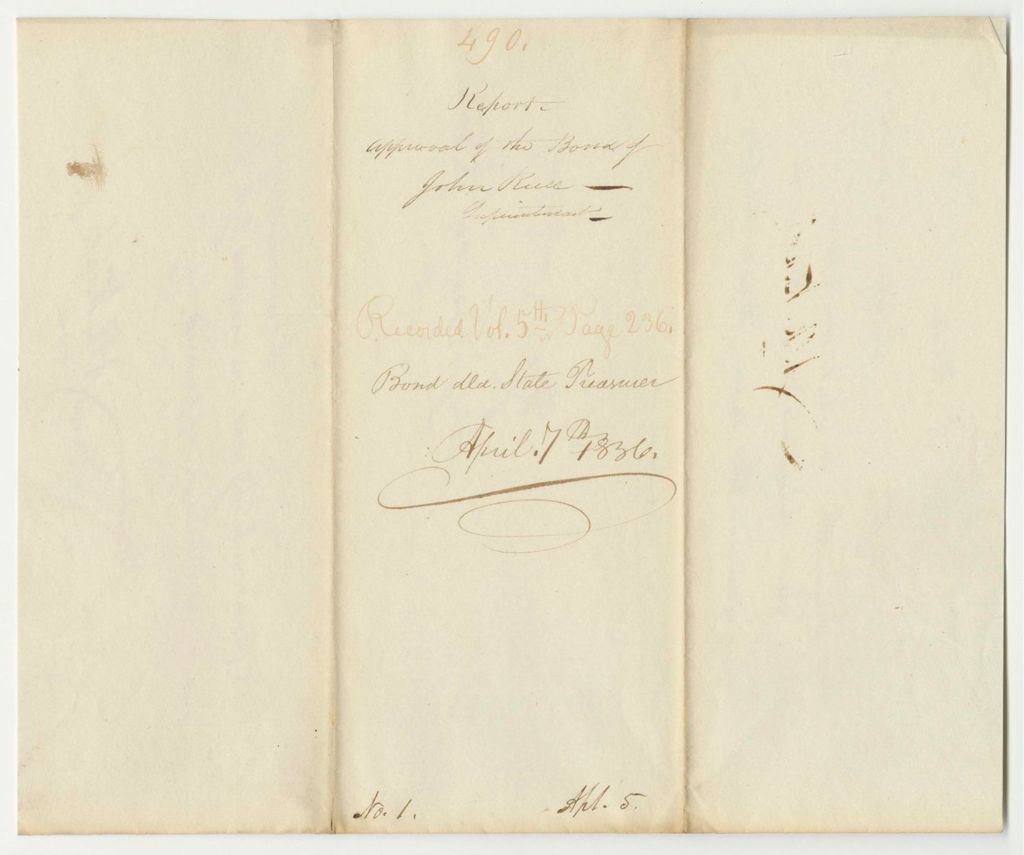 490.
Report–
approval of the Bond of
John Rull —
Superintendent–
Recorded Vol. 5th. Page 236.
Bond dld. State Treasurer
April. 7th 1836.
No. 1.
Apl. 5.